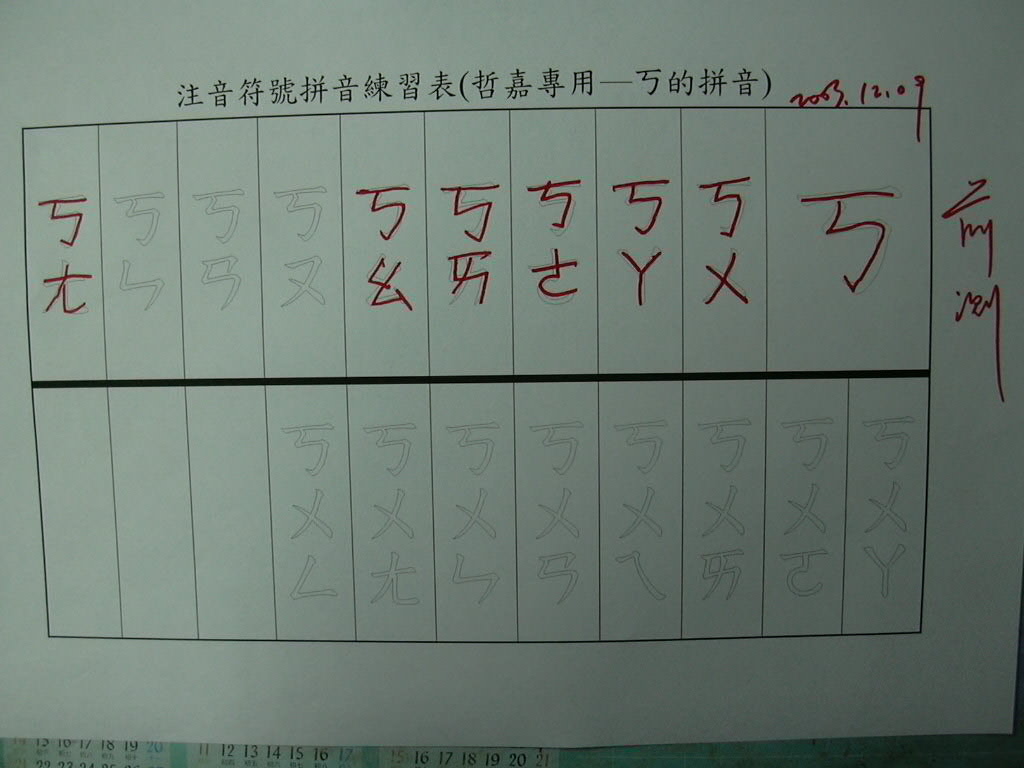 注音符號拼音練習表(哲嘉專用—ㄎ的拼音)
2003.12.09
前測
ㄎ
ㄎㄨ
ㄎㄚ
ㄎㄜ
ㄎㄞ
ㄎㄠ
ㄎㄡ
ㄎㄢ
ㄎㄣ
ㄎㄤ
ㄎㄨㄚ
ㄎㄨㄛ
ㄎㄨㄞ
ㄎㄨㄟ
ㄎㄨㄢ
ㄎㄨㄣ
ㄎㄨㄤ
ㄎㄨㄥ
14 15 16 17 18 19 20
11 12 13 14 15 16 17
15 16 17 18 19 20 21